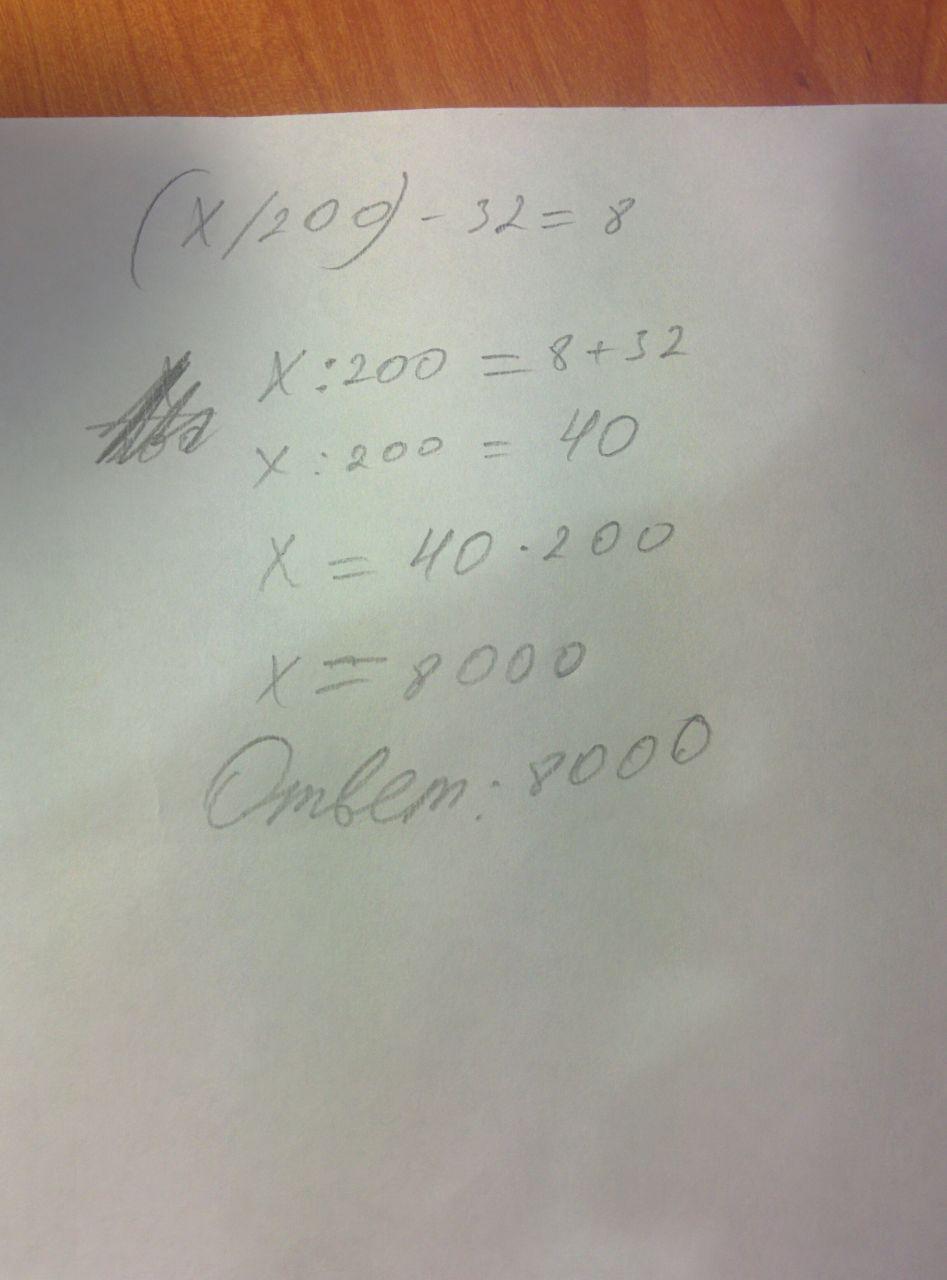 (x/200) - 32 = 8
x : 200 = 8 + 32
x : 200 = 40
x = 40 · 200
x = 8000
Ответ: 8000